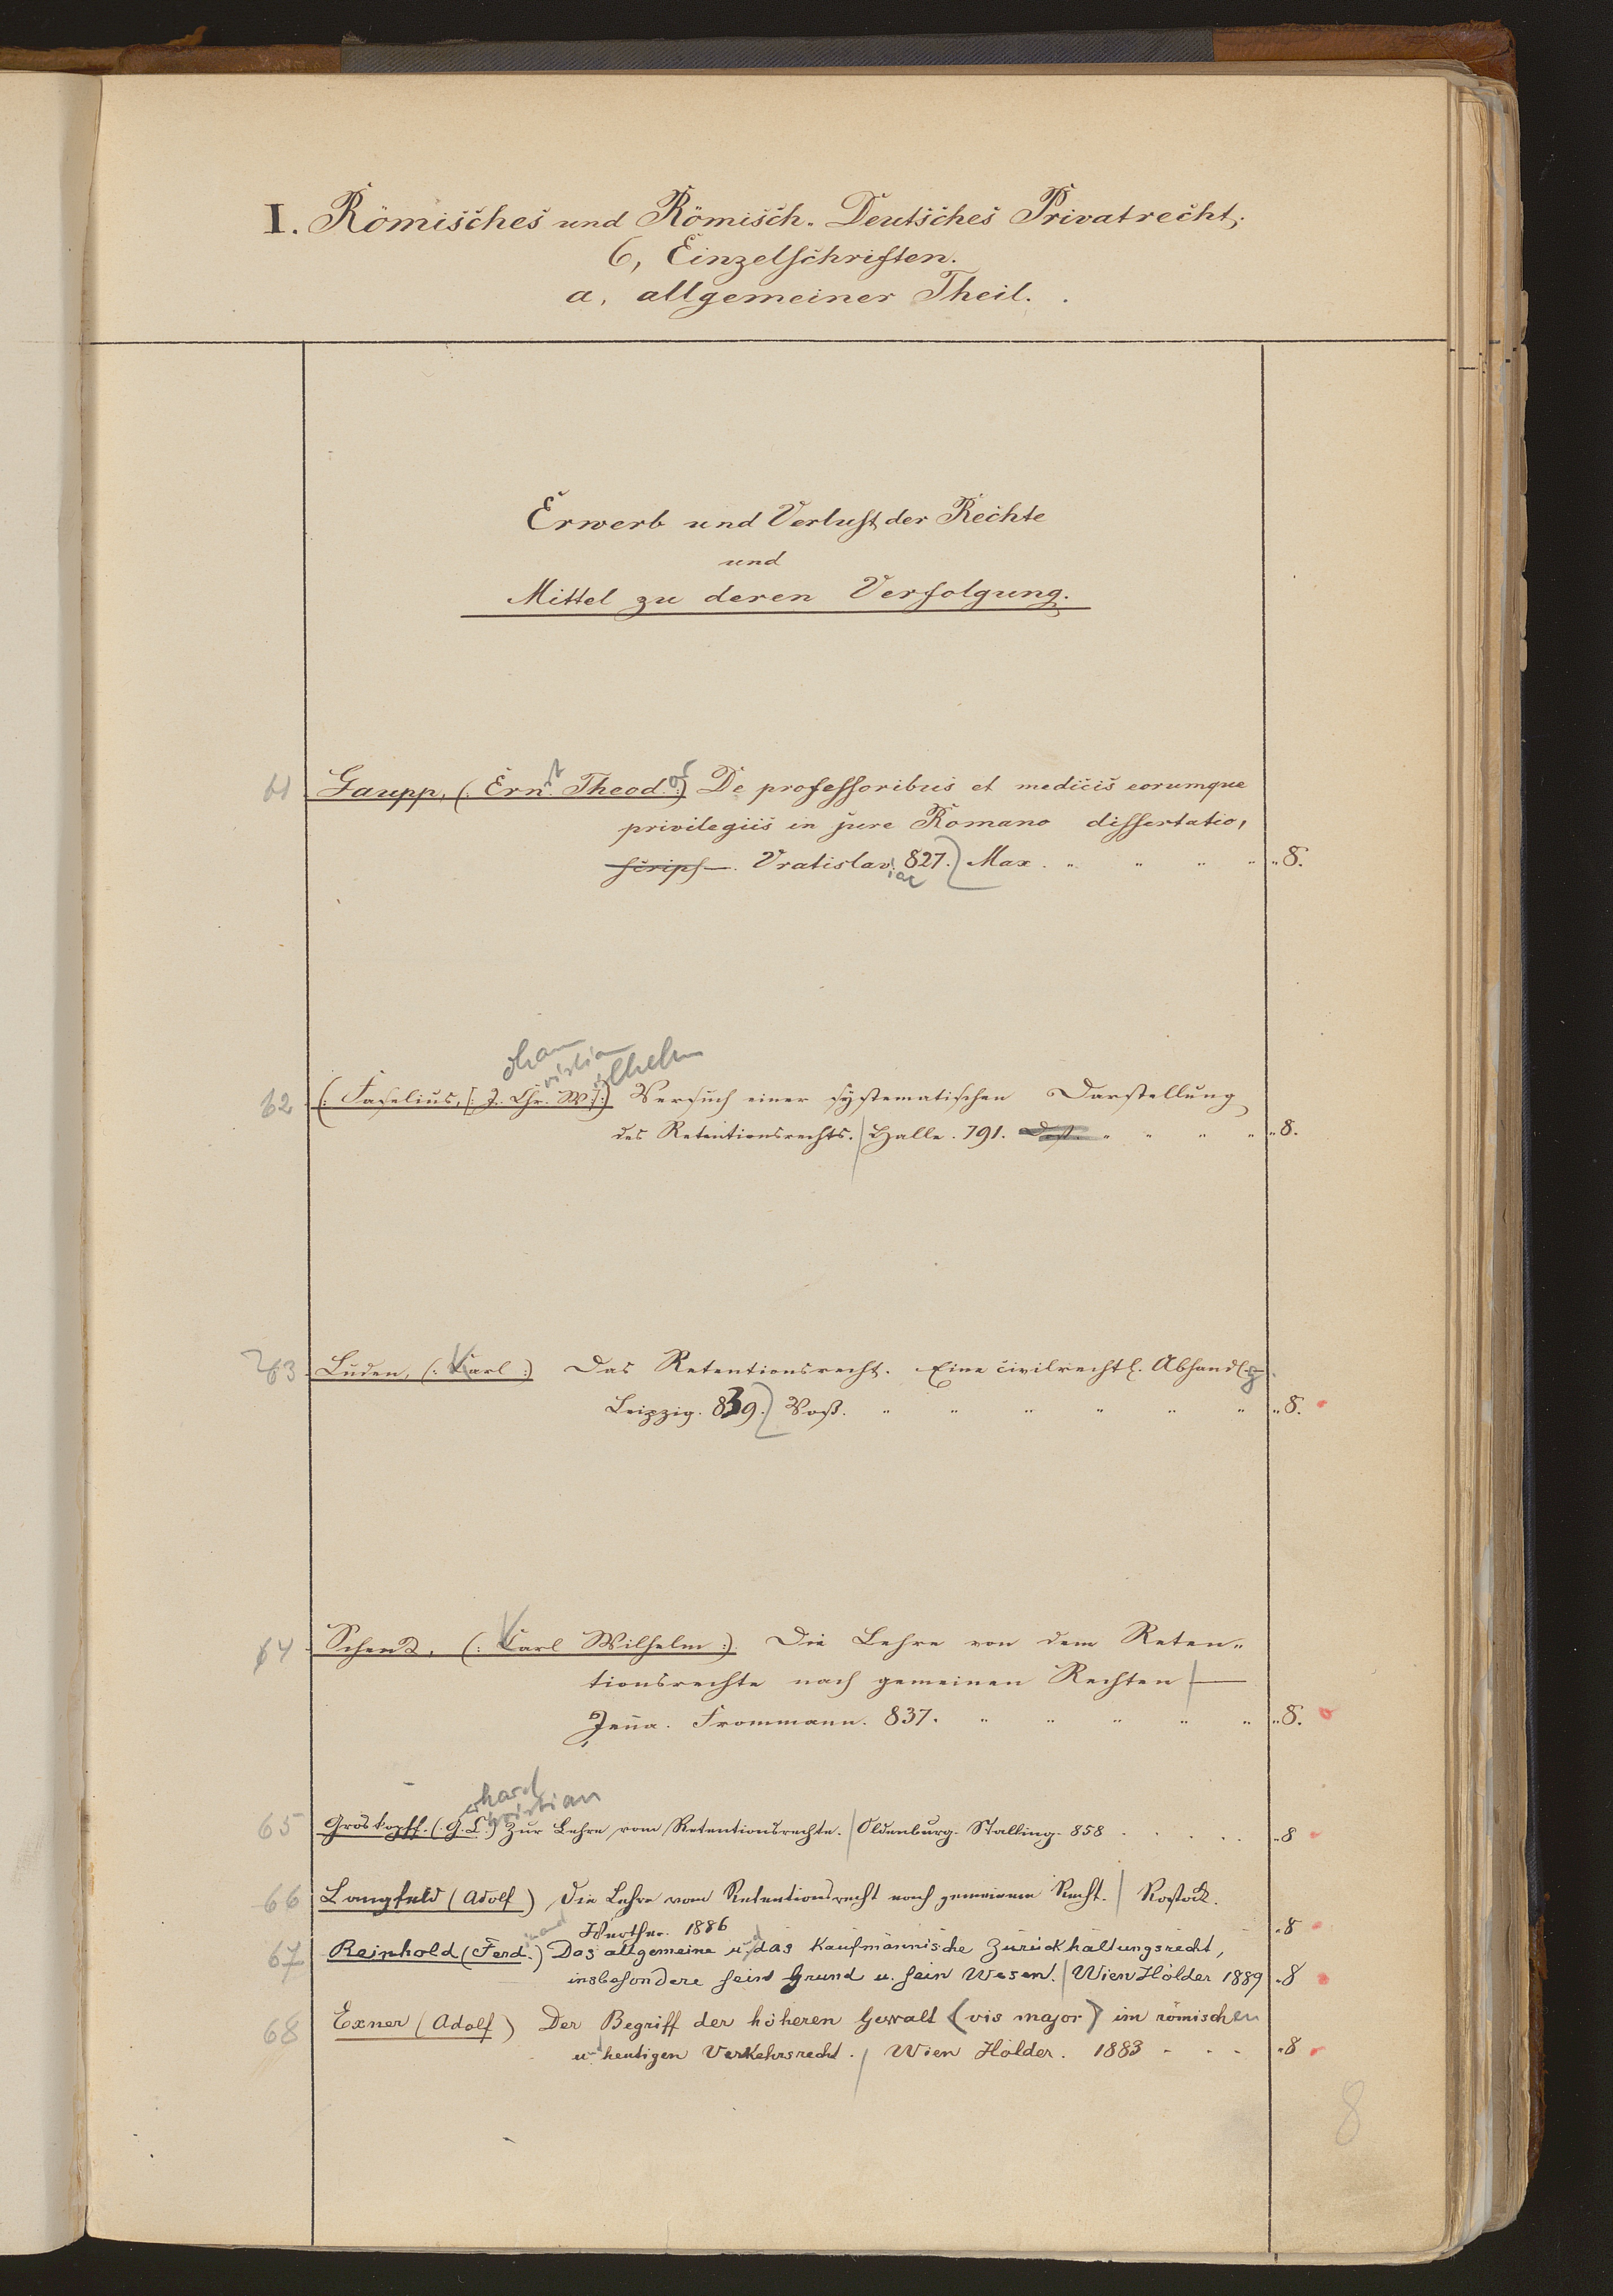 I. Römisches und Römisch-Deutsches Privatrecht;
6, Einzelschriften.
a, allgemeiner Theil.
Erwerb und Verlust der Rechte
und
Mittel zu deren Verfolgung.
61 Gaupp, (: Ernst Theodof :) De professoribus et medicis eorumque
privilegiis in jure Romano dissertatio,
scrips. Vratislaviae 827. Max. " " " " " 8.
ohann ristian ilhelm
62 (: Faselius, [: J. Chr. W :] :) Versuch einer systematischen Darstellung
des Retentionsrechts. | Halle. 791. " " " " " 8.
63 Luden, (: Karl :) Das Retentionsrecht. Eine civilrechtl. Abhandlg.
Leipzig. 839. Voß. " " " " " " " 8.
64 Schenk, (: Karl Wilhelm :) Die Lehre von dem Reten-
tionsrechte nach gemeinen Rechten | —
Jena. Frommann. 837. " " " " " " 8.
erhard hristian
65 Groskopff. (: G. C. :) Zur Lehre vom Retentionsrechte. | Oldenburg. Stalling. 858 . . . . . " 8
66 Langfeld (Adolf) Die Lehre vom Retentionsrecht nach gemeinem Recht. | Rostock.
Werther. 1886 " 8
67 Reinhold (Ferdinand) Das allgemeine und das kaufmännische Zurückhaltungsrecht,
insbesondere sein Grund u. sein Wesen. | Wien Hölder 1889 " 8
68 Exner (Adolf) Der Begriff der höheren Gewalt (vis major) im römischen
und heutigen Verkehrsrecht. | Wien Hölder. 1883 - - - " 8
8